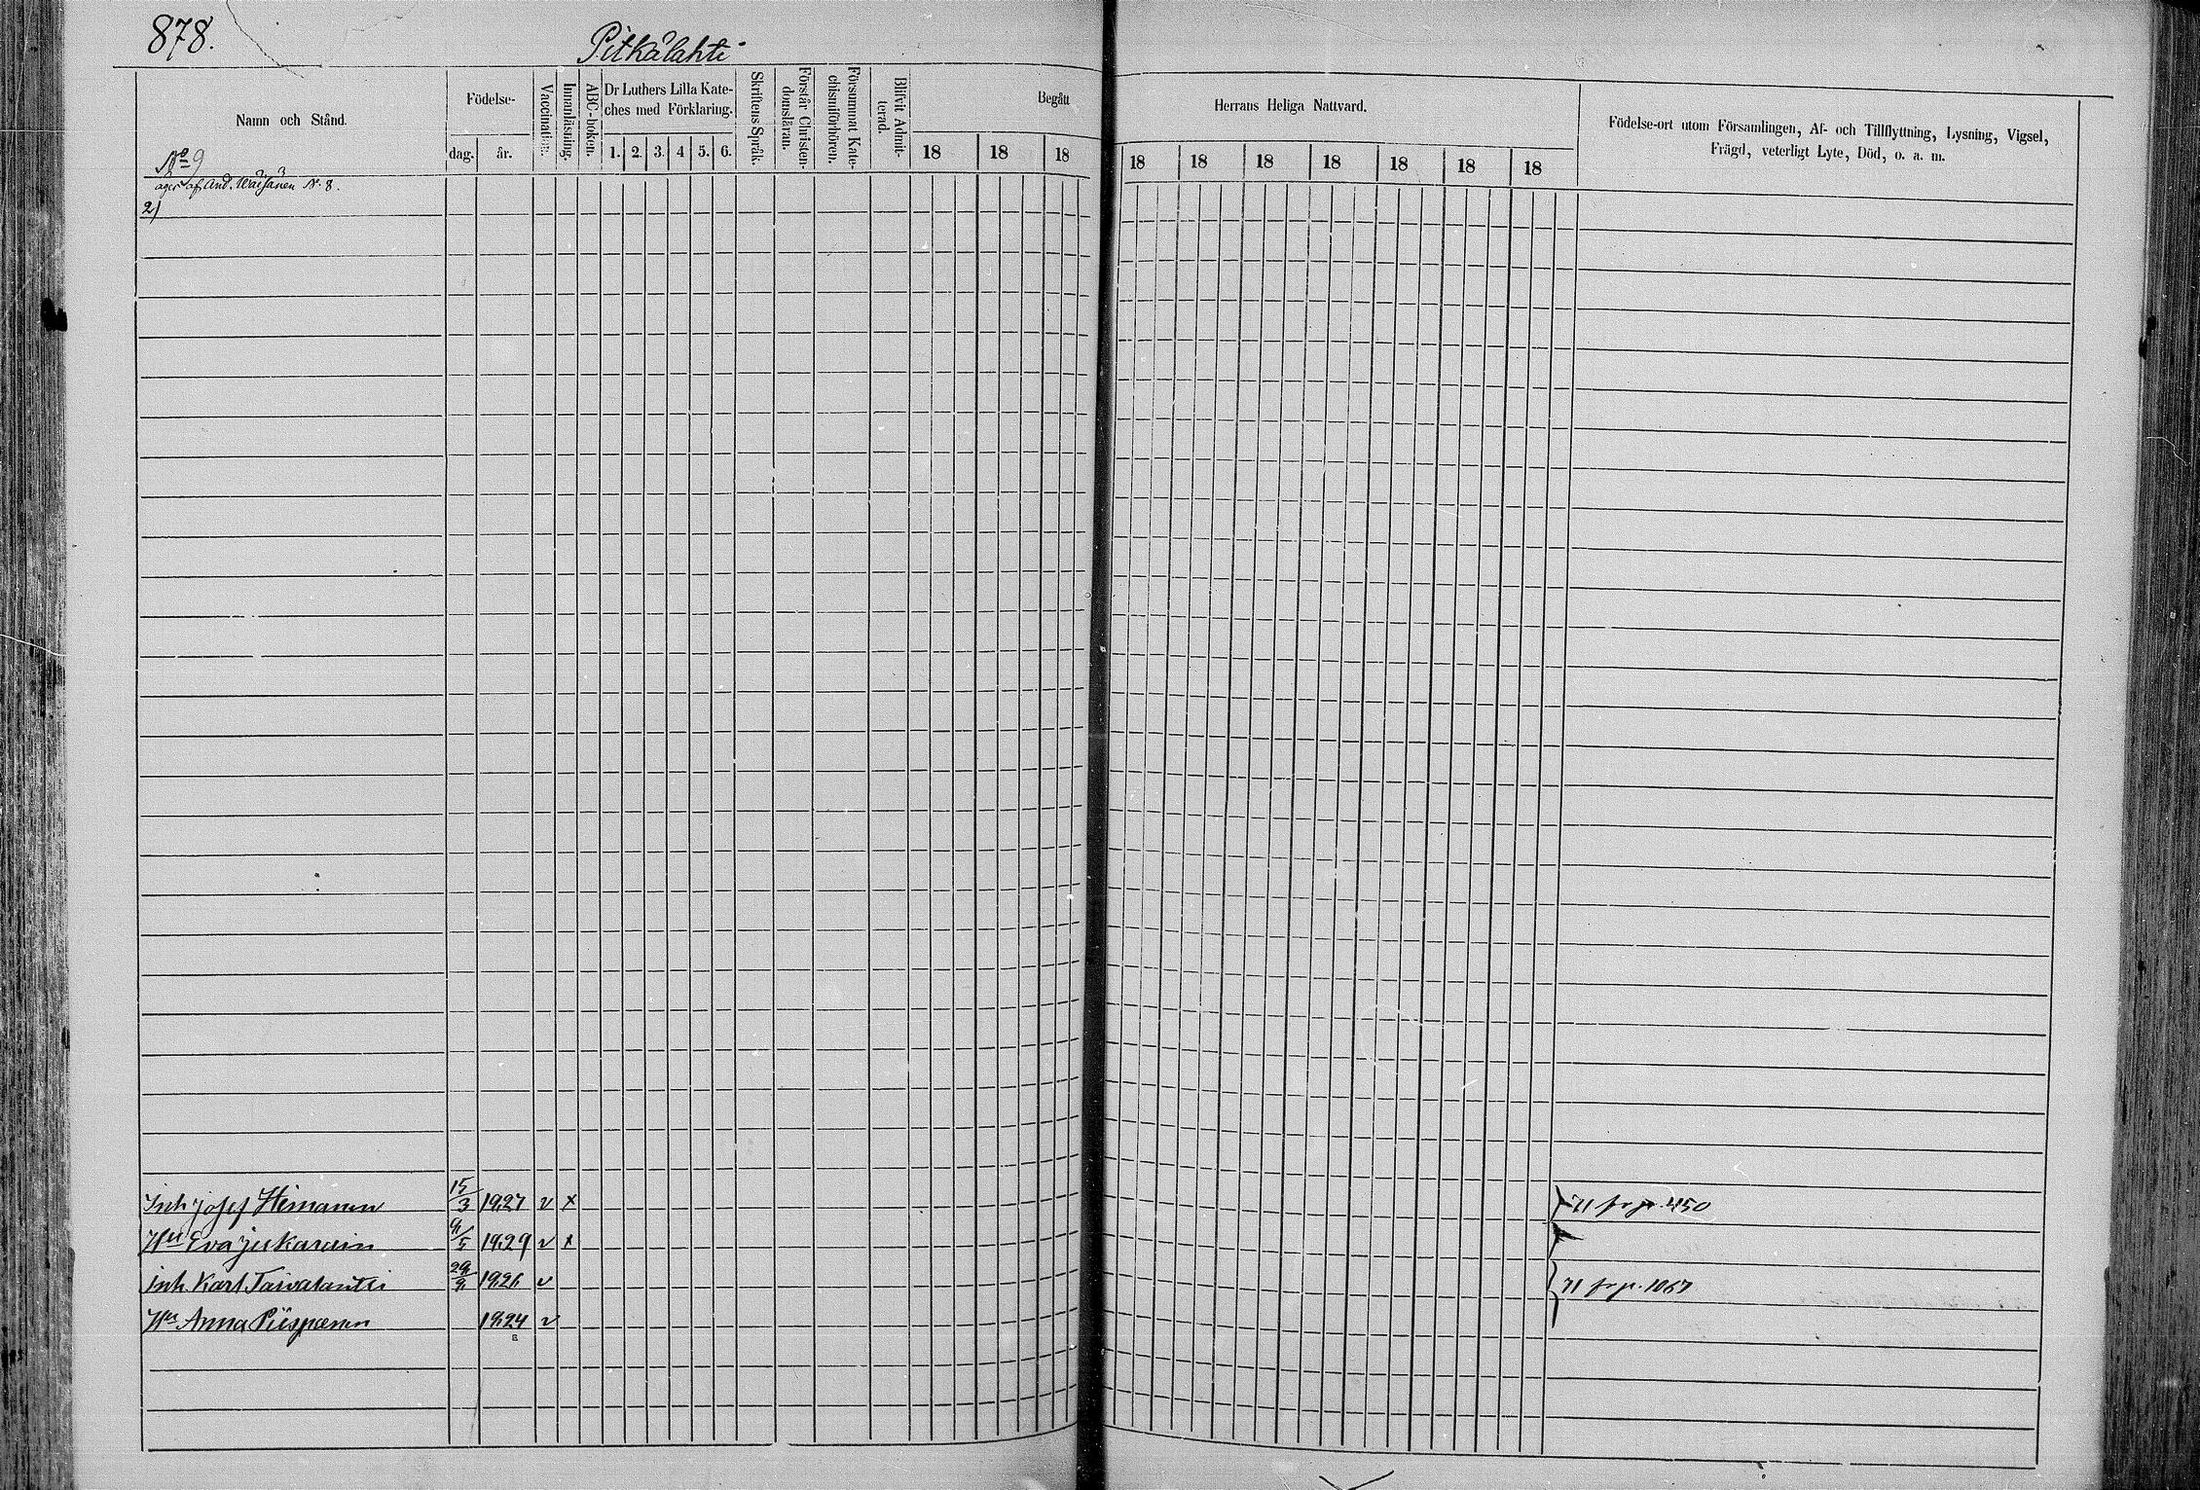 878.
Pitkälahti
Namn och Stånd.
Födelse-
dag.
år.
Vaccination.
Innanläsning.
ABC-boken.
Dr Luthers Lilla Kate-
ches med Förklaring.
1. 2. 3. 4 5. 6.
Skriftens Språk.
Förstår Christen-
domsläran.
Försummat Kate-
chismiförhören.
Blifvit Admit-
terad.
Begått
18 18 18
Herrans Heliga Nattvard.
18 18 18 18 18 18 18
Födelse-ort utom Församlingen, Af- och Tillflyttning, Lysning, Vigsel,
Frägd, veterligt Lyte, Död, o. a. m.
No 9
äges af And. Väisänen N. 8.
2)
Inh Josef Heinanen 15/3 1827 v x 71 fr p. 450
Hu Eva v x
inh. Karl Taivalantti 29/9 1826 v 71 fr p. 1067
Hu Anna Piispanen 1824 v